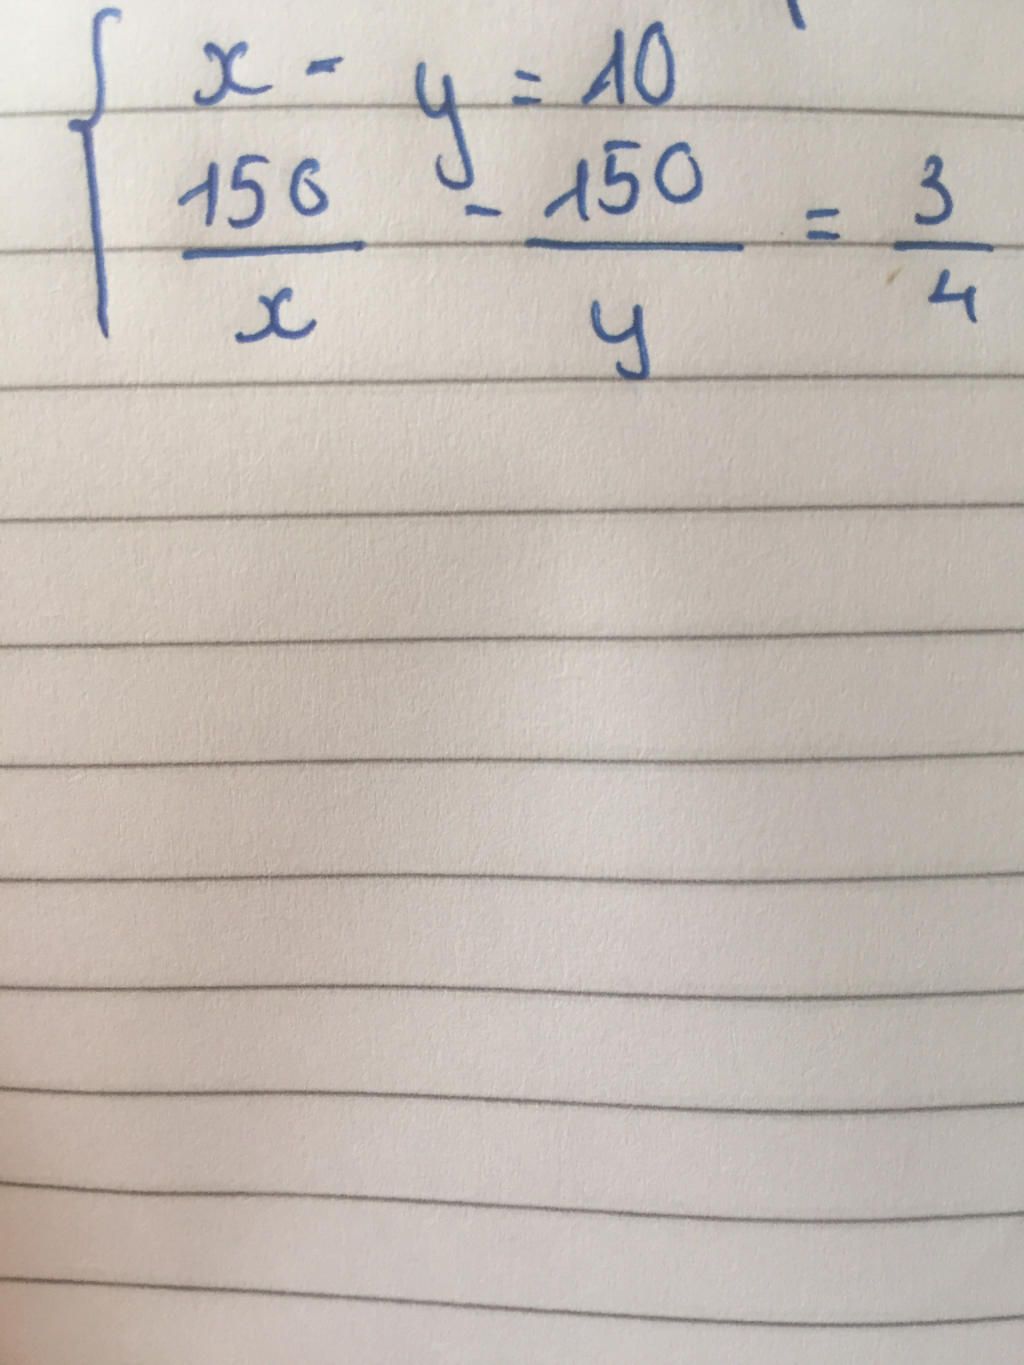 x - y = 10
150/x - 150/y = 3/4